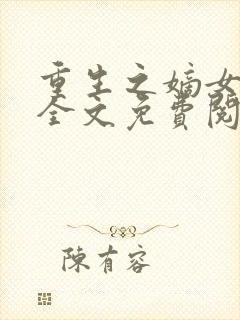 重生之嫡女
全文免費閱
陳有容